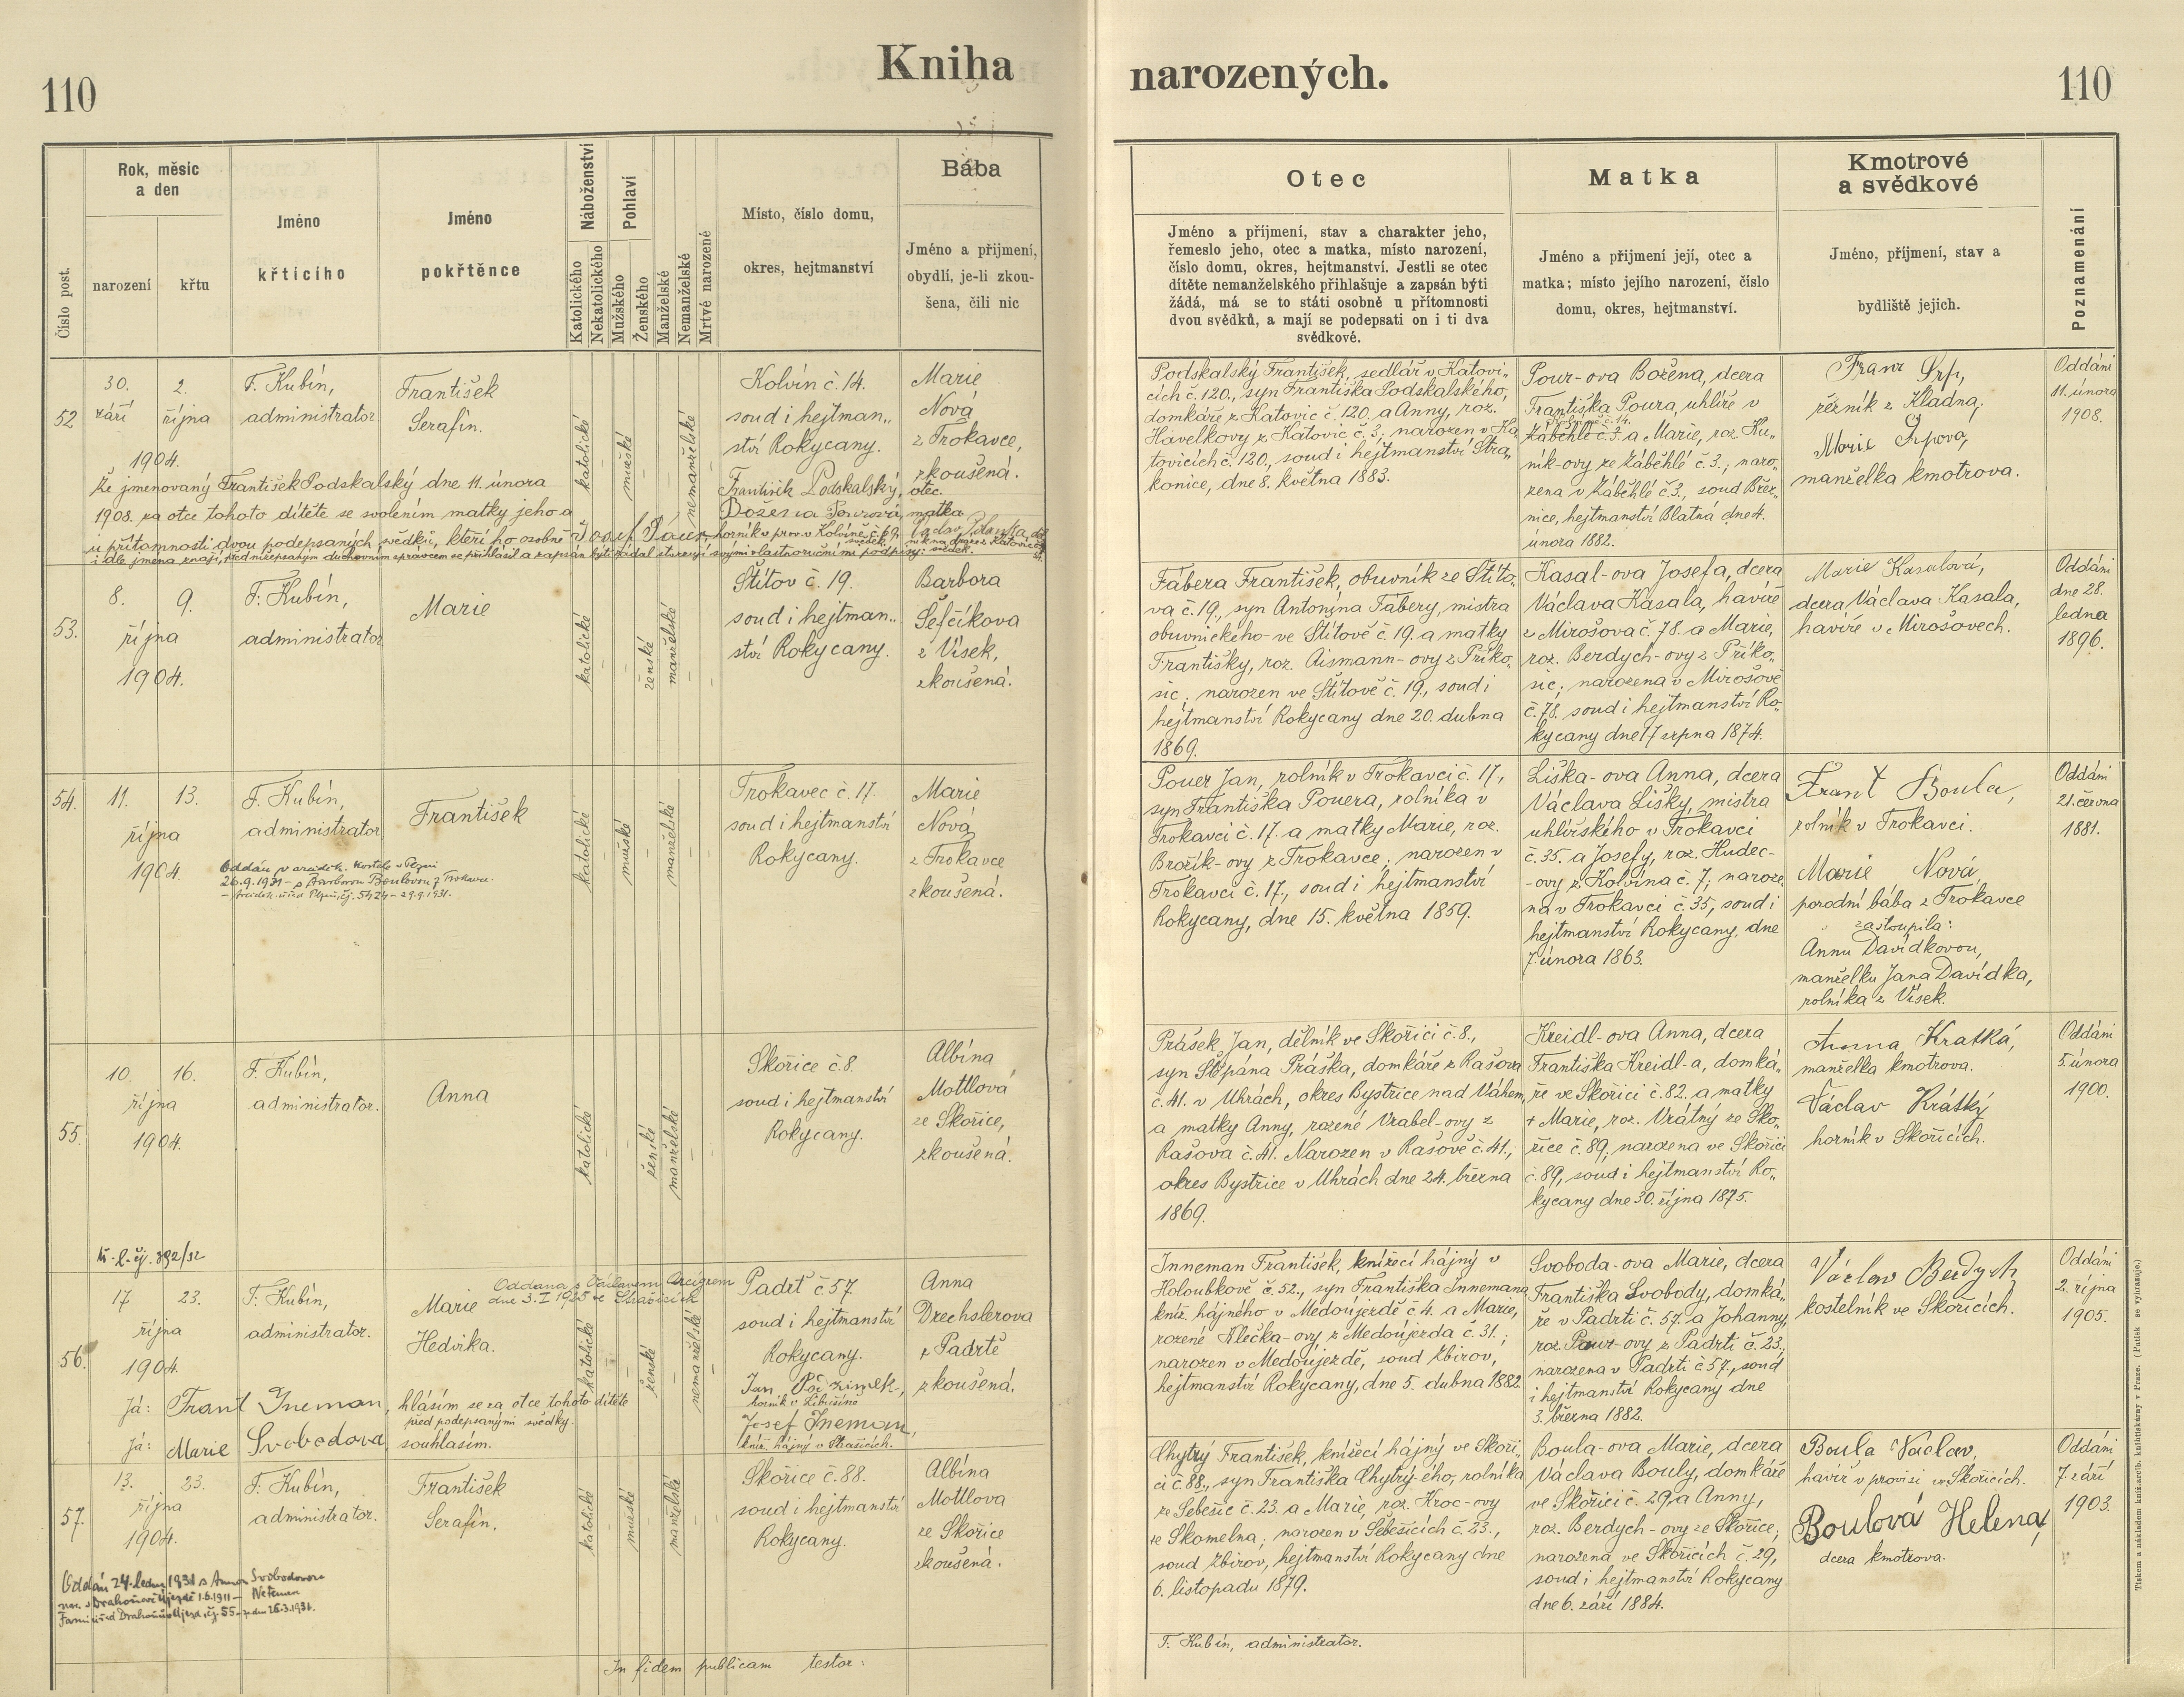 110
Kniha
narozených.
110
Číslo post.
Rok, měsíc
a den
narození
křtu
Jméno
křtícího
Jméno
pokřtěnce
Náboženství
Katolického
Nekatolického
Pohlaví
Mužského
Ženského
Manželské
Nemanželské
Mrtvě narozené
Místo, číslo domu,
okres, hejtmanství
Bába
Jméno a přijmení,
obydlí, je-li zkou-
šena, čili nic
Otec
Jméno a příjmení, stav a charakter jeho,
řemeslo jeho, otec a matka, místo narození,
číslo domu, okres, hejtmanství. Jestli se otec
dítěte nemanželského přihlašuje a zapsán býti
žádá, má se to státi osobně u přítomnosti
dvou svědků, a mají se podepsati on i ti dva
svědkové.
Matka
Jméno a přijmení její, otec a
matka; místo jejího narození, číslo
domu, okres, hejtmanství.
Kmotrové
a svědkové
Jméno, příjmení, stav a
bydliště jejich.
Poznamenání
52
30.
září
2.
října
1904.
F. Kubín,
administrator
František
Serafín.
katolické
mužské
nemanželské
Kolvín č. 14.
soud i hejtman„
ství Rokycany.
Marie
Nová
z Trokavce,
zkoušená.
Že jmenovaný František Podskalský dne 11. února
1908. za otce tohoto dítěte se svolením matky jeho a
u přítomnosti dvou podepsaných svědků, kteří ho osobně
i dle jména znají, před níže psaným duchovním správcem se přihlásil a zapsán býti žádal stvrzují svými vlastnoručními podpisy:
František Podskalský, otec.
Božena Pourová, matka
Josef Pauer, horník v prov. v Kolvíně č. 69. svědek.
Podskalský František, sedlář v Katovi„
cích č. 120., syn Františka Podskalského,
domkáře z Katovic č. 120. a Anny, roz.
Havelkovy z Katovic č. 3; narozen v Ka
tovicích č. 120., soud i hejtmanství Stra„
konice, dne 8. května 1883.
Pour-ova Božena, dcera
Františka Poura, uhlíře v
Záběhlé č. 3. a Marie, roz. Ku„
ník-ovy ze Záběhlé č. 3.; naro„
zena v Záběhlé č. 3., soud Břez„
nice, hejtmanství Blatná dne 4.
února 1882.
Franz Srp,
řezník z Kladna;
Marie Srpová,
manželka kmotrova.
Oddáni
11. února
1908.
53.
8.
9.
října
1904.
F. Kubín,
administrator
Marie
katolické
ženské
manželské
Štítov č. 19.
soud i hejtman„
ství Rokycany.
Barbora
Šefčíkova
z Vísek,
zkoušená.
Fábera František, obuvník ze Štíto„
va č. 19., syn Antonína Fábery, mistra
obuvnického ve Štítově č. 19. a matky
Františky, roz. Aismann-ovy z Příko„
sic; narozen ve Štítově č. 19., soud i
hejtmanství Rokycany dne 20. dubna
1869.
Kasal-ova Josefa, dcera
Václava Kasala, havíře
z Mirošova č. 78. a Marie,
roz. Berdych-ovy z Příko„
sic; narozena v Mirošově
č. 78. soud i hejtmanství Ro„
kycany dne 17 srpna 1874.
Marie Kasalová,
dcera Václava Kasala,
havíře v Mirošovech.
Oddáni
dne 28.
ledna
1896.
54.
11.
13.
října
1904.
F. Kubín,
administrator
František
Oddán v arciděk. kostele v Plzni
26.9.1931 – s Barborou Boulovou z Trokavce.
– Arciděk. úřad Plzeň, čj. 5424 – 29.9.1931.
katolické
mužské
manželské
Trokavec č. 17.
soud i hejtmanství
Rokycany.
Marie
Nová
z Trokavce
zkoušená.
Pouer Jan, rolník v Trokavci č. 17,
syn Františka Pouera, rolníka v
Trokavci č. 17. a matky Marie, roz.
Brožík-ovy z Trokavce; narozen v
Trokavci č. 17., soud i hejtmanství
Rokycany, dne 15. května 1859.
Liška-ova Anna, dcera
Václava Lišky, mistra
uhlířského v Trokavci
č. 35. a Josefy, roz. Hudec-
-ovy z Kolvína č. 7; naroze„
na v Trokavci č. 35, soud i
hejtmanství Rokycany, dne
7. února 1863.
Frant Boula,
rolník v Trokavci.
Marie Nová
porodní bába z Trokavce
zastoupila:
Annu Davídkovou,
manželku Jana Davídka,
rolníka z Vísek.
Oddáni
21. června
1881.
55.
10.
16.
října
1904.
F. Kubín,
administrator.
Anna
katolické
ženské
manželské
Skořice č. 8.
soud i hejtmanství
Rokycany.
Albína
Mottlová
ze Skořice,
zkoušená.
Prášek Jan, dělník ve Skořici č. 8.,
syn Štěpána Práška, domkáře z Rašova
č. 41. v Uhrách, okres Bystřice nad Váhem,
a matky Anny, rozené Vrabel-ovy z
Rašova č. 41. Narozen v Rašově č. 41.,
okres Bystrice v Uhrách dne 24. března
1869.
Kreidl-ova Anna, dcera
Františka Kreidl-a, domká„
ře ve Skořici č. 82. a matky
+ Marie, roz. Vrátný ze Sko„
řice č. 89; narozena ve Skořici
č. 89, soud i hejtmanství Ro„
kycany dne 30. října 1875.
Anna Kratká,
manželka kmotrova.
Václav Krátký
horník v Skořicích.
Oddáni
5. února
1900.
čj. 392/32
56.
17
23.
října
1904.
F. Kubín,
administrator.
Marie
Hedvika.
Oddana s Václavem Arcigrem
dne 3. I 1925 ve Strašicích
katolické
ženské
nemanželské
Padrť č. 57.
soud i hejtmanství
Rokycany.
Anna
Drechslerova
z Padrtě
zkoušená.
Já: Frant Ineman, hlásím se za otce tohoto dítěte
před podepsanými svědky.
Já: Marie Svobodova, souhlasím.
horník v Libušíně
Josef Ineman,
kníž. hájný v Strašicích.
Inneman František, knížecí hájný v
Holoubkově č. 52., syn Františka Innemana
kníž. hájného v Medoújezdě č. 4. a Marie,
rozené Klečka-ovy z Medoújezda č. 31.;
narozen v Medoújezdě, soud Zbirov,
hejtmanství Rokycany, dne 5. dubna 1882.
Svoboda-ova Marie, dcera
Františka Svobody, domká„
ře v Padrti č. 57. a Johanny,
roz. Pour-ovy z Padrti č. 23.;
narozena v Padrti č. 57., soud
i hejtmanství Rokycany dne
3. března 1882.
Václav Berdych
kostelník ve Skořicích.
Oddáni
2. října
1905.
57.
13.
23.
října
1904.
F. Kubín,
administrator.
František
Serafín.
katolické
mužské
manželské
Skořice č. 88.
soud i hejtmanství
Rokycany.
Albína
Mottlova
ze Skořice
zkoušená.
Oddán 24. ledna 1931 s Annou Svobodovou
nar. v Drahoňově Újezdě 1.6.1911 –
Chytrý František, knížecí hájný ve Skoři„
ci č. 88., syn Františka Chytrý-ého, rolníka
ze Sebešic č. 23. a Marie, roz. Kroc-ovy
ze Skomelna; narozen v Šebešicích č. 23.,
soud Zbirov, hejtmanství Rokycany dne
6. listopadu 1879.
Boula-ova Marie, dcera
Václava Bouly, domkáře
ve Skořici č. 29, a Anny,
roz. Berdych-ovy ze Skořice;
narozena ve Skořicích č. 29,
soud i hejtmanství Rokycany
dne 6. září 1884.
Boula Václav,
havíř v provisi ve Skořicích.
Boulová Helena,
dcera kmotrova.
Oddáni
7. září
1903.
In fidem publicam testor:
F. Kubín, administrator.
Tiskem a nákladem kníž. arcib. knihtiskárny v Praze. (Patisk se vyhrazuje.)